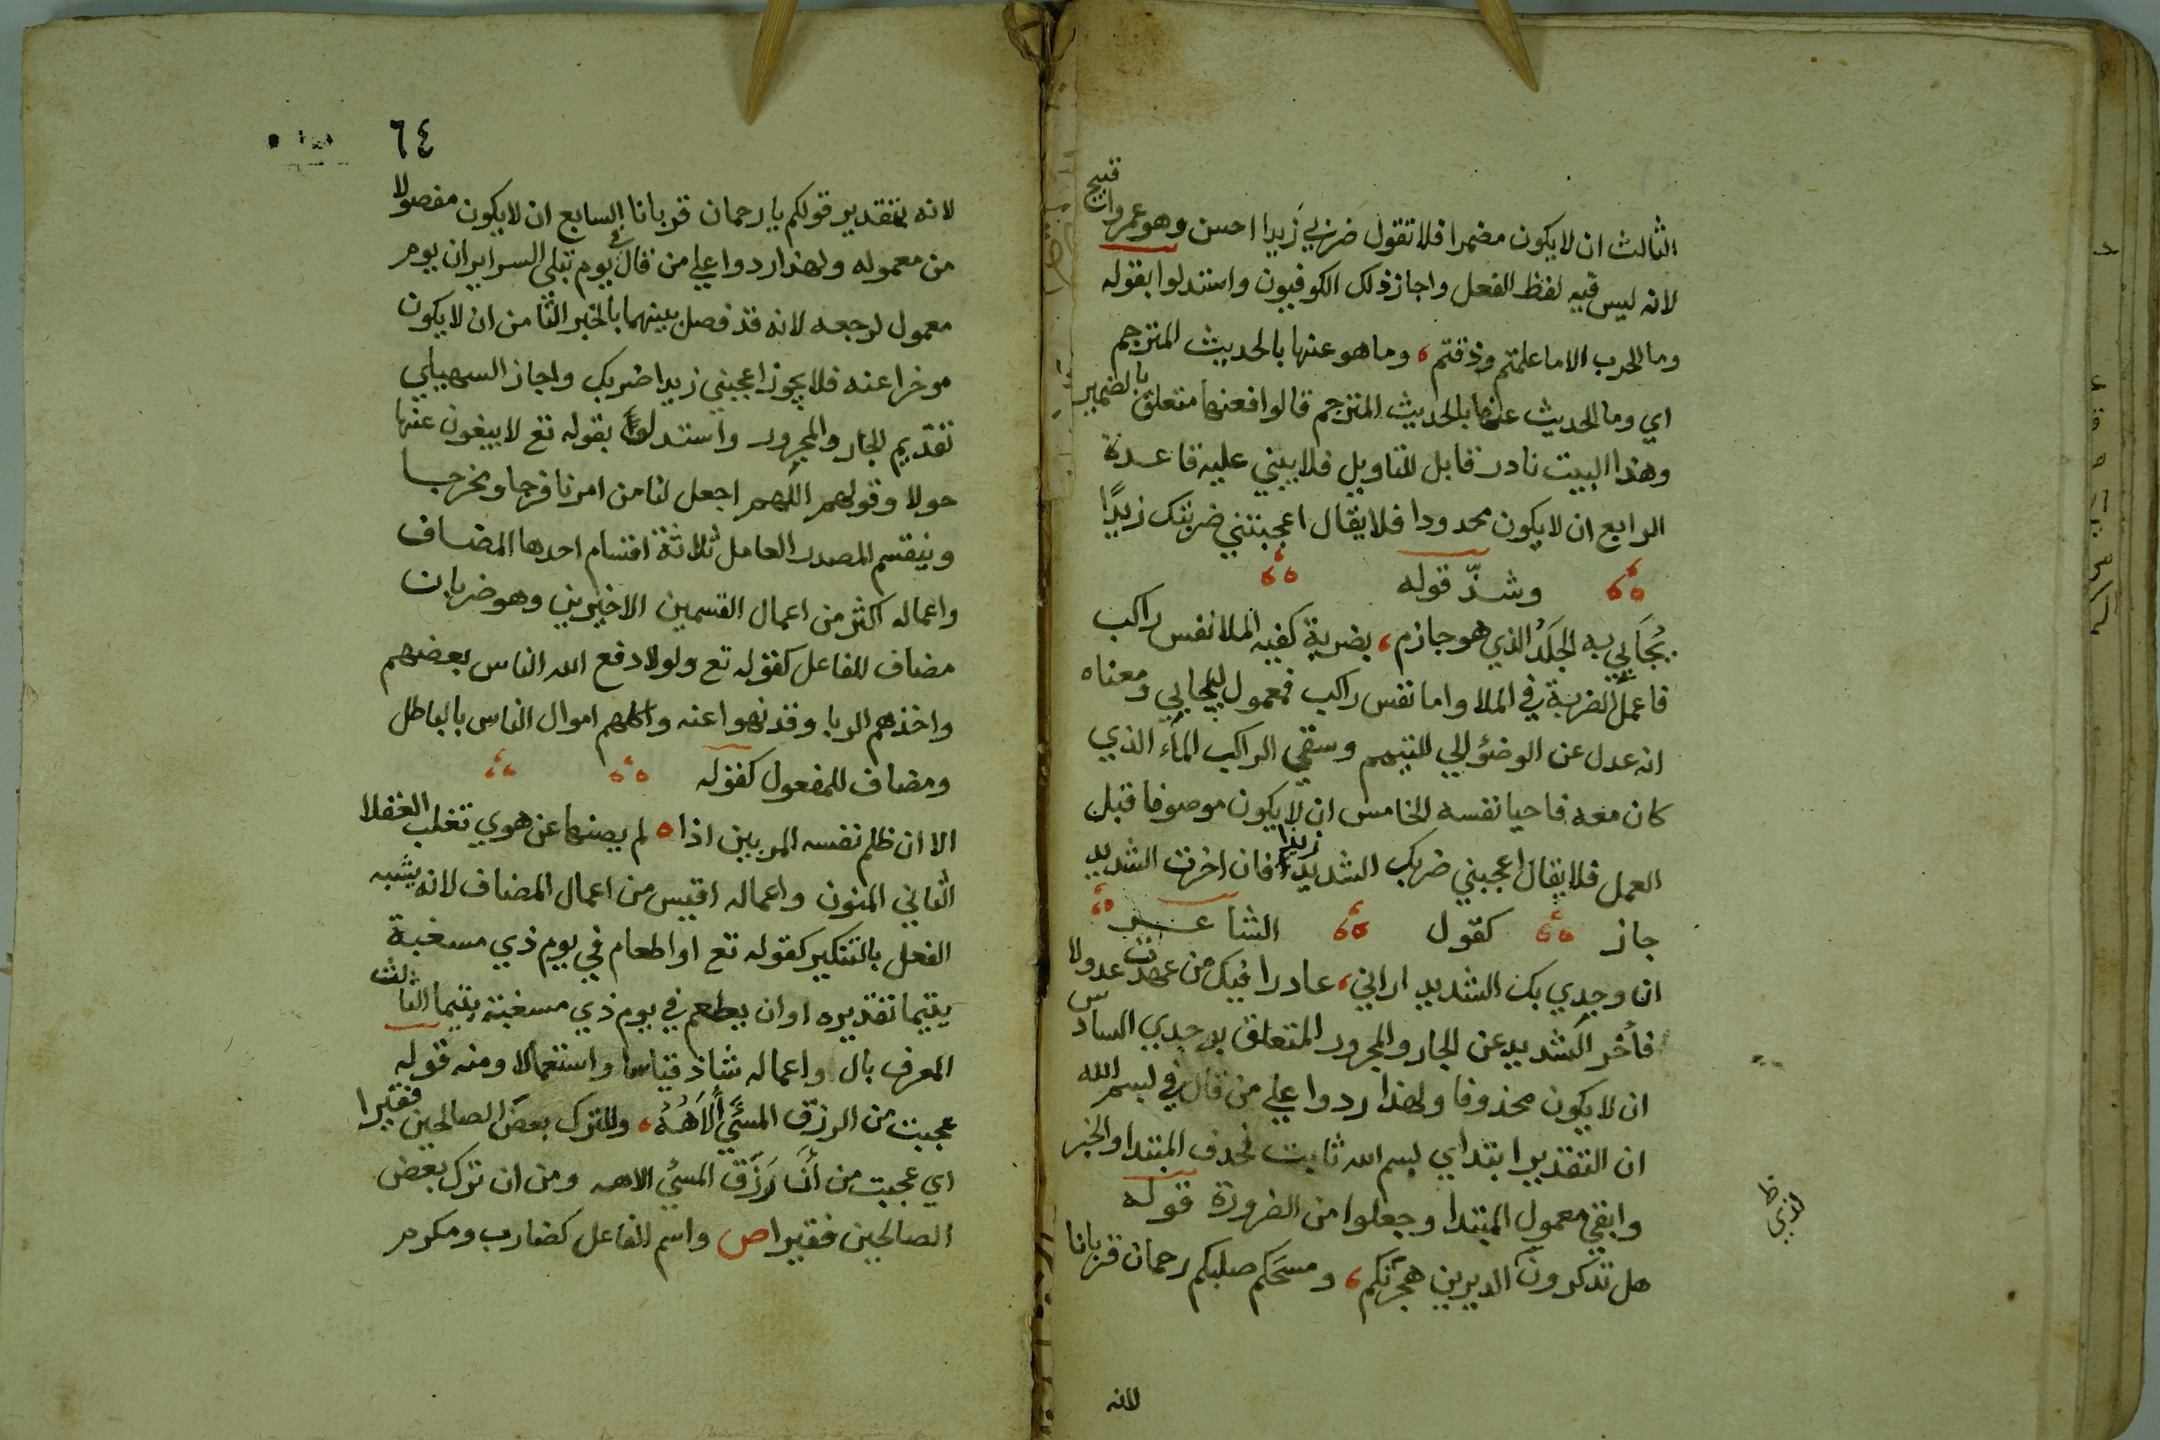 الثالث ان لا يكون مضمرا فلا تقول ضربي زيدا احسن وهو عمروا قبيح
لانه ليس فيه لفظ الفعل واجاز ذلك الكوفيون واستدلوا بقوله
وما الحرب الا ما علمتم وذقتم، وما هو عنها بالحديث المترجم
اي وما الحديث عنها بالحديث المترجم قالوا فعنها متعلق بالضمير
وهذا البيت نادر قابل للتاويل فلا يبني عليه قاعدة
الرابع ان لا يكون محدودا فلا يقال اعجبتني ضربتك زيدًا
وشذّ قوله
يُحَابي به الجَلدُ الذي هو حازم، بضربة كفيه الملا نفس راكب
فاعمل الضربة في الملا واما نفس راكب فمعمول ليحابي ومعناه
انه عدل عن الوضؤ الي التيمم وسقي الراكب الماء الذي
كان معه فاحيا نفسه الخامس ان لا يكون موصوفا قبل
العمل فلا يقال اعجبني ضربك الشديد زيدا فان اخرت الشديد
جاز كقول الشاعر
ان وجدي بك الشديد اراني، عاذرا فيك من عهدت عذولا
فأخر الشديد عن الجار والمجرور المتعلق بوجدي السادس
ان لا يكون محذوفا ولهذا ردوا علي من قال في بسم الله
ان التقدير ابتداي بسم الله ثابت فحذف المبتدا والخبر
وابقي معمول المبتدا وجعلوا من الضرورة قوله
هل تذكرون الديرين هجرتكم، ومسحكم صلبكم رحمان قربانا
لانه
٦٤
لانه بتقدير قولكم يا رحمان قربانا السابع ان لا يكون مفصولا
من معموله ولهذا ردوا علي من قال في يوم تبلي السراير ان يوم
معمول لرجعه لانه قد فصل بينهما بالخبر الثامن ان لا يكون
موخرا عنه فلا يجوز اعجبني زيدا ضربك واجاز السهيلي
تقديم الجار والمجرور واستدل بقوله تع لا يبغون عنها
حولا وقولهم اللهم اجعل لنا من امرنا فرجا ومخرجا
وينقسم المصدر العامل ثلاثة اقسام احدها المضاف
واعماله اكثر من اعمال القسمين الاخيرين وهو ضربان
مضاف للفاعل كقوله تع ولولا دفع الله الناس بعضهم
واخذهم الربا وقد نهوا عنه واكلهم اموال الناس بالباطل
ومضاف للمفعول كقوله
الا ان ظلم نفسه المر بين اذا ه لم يصنها عن هوي تغلب العقلا
الثاني المنون واعماله اقيس من اعمال المضاف لانه يشبه
الفعل بالتنكير كقوله تع او اطعام في يوم ذي مسغبة
يتيما تقديره او ان يطعم في يوم ذي مسغبة يتيما الثالث
المعرف بال واعماله شاذ قياسا واستعمالا ومنه قوله
عجبت من الرزق المسَّي أَلَاهُهُ، وللترك بعض الصالحين فقيرا
اي عجبت من أن رَزَق المسي الاهه ومن ان ترك بعض
الصالحين فقيرا ص واسم الفاعل كضارب ومكرم